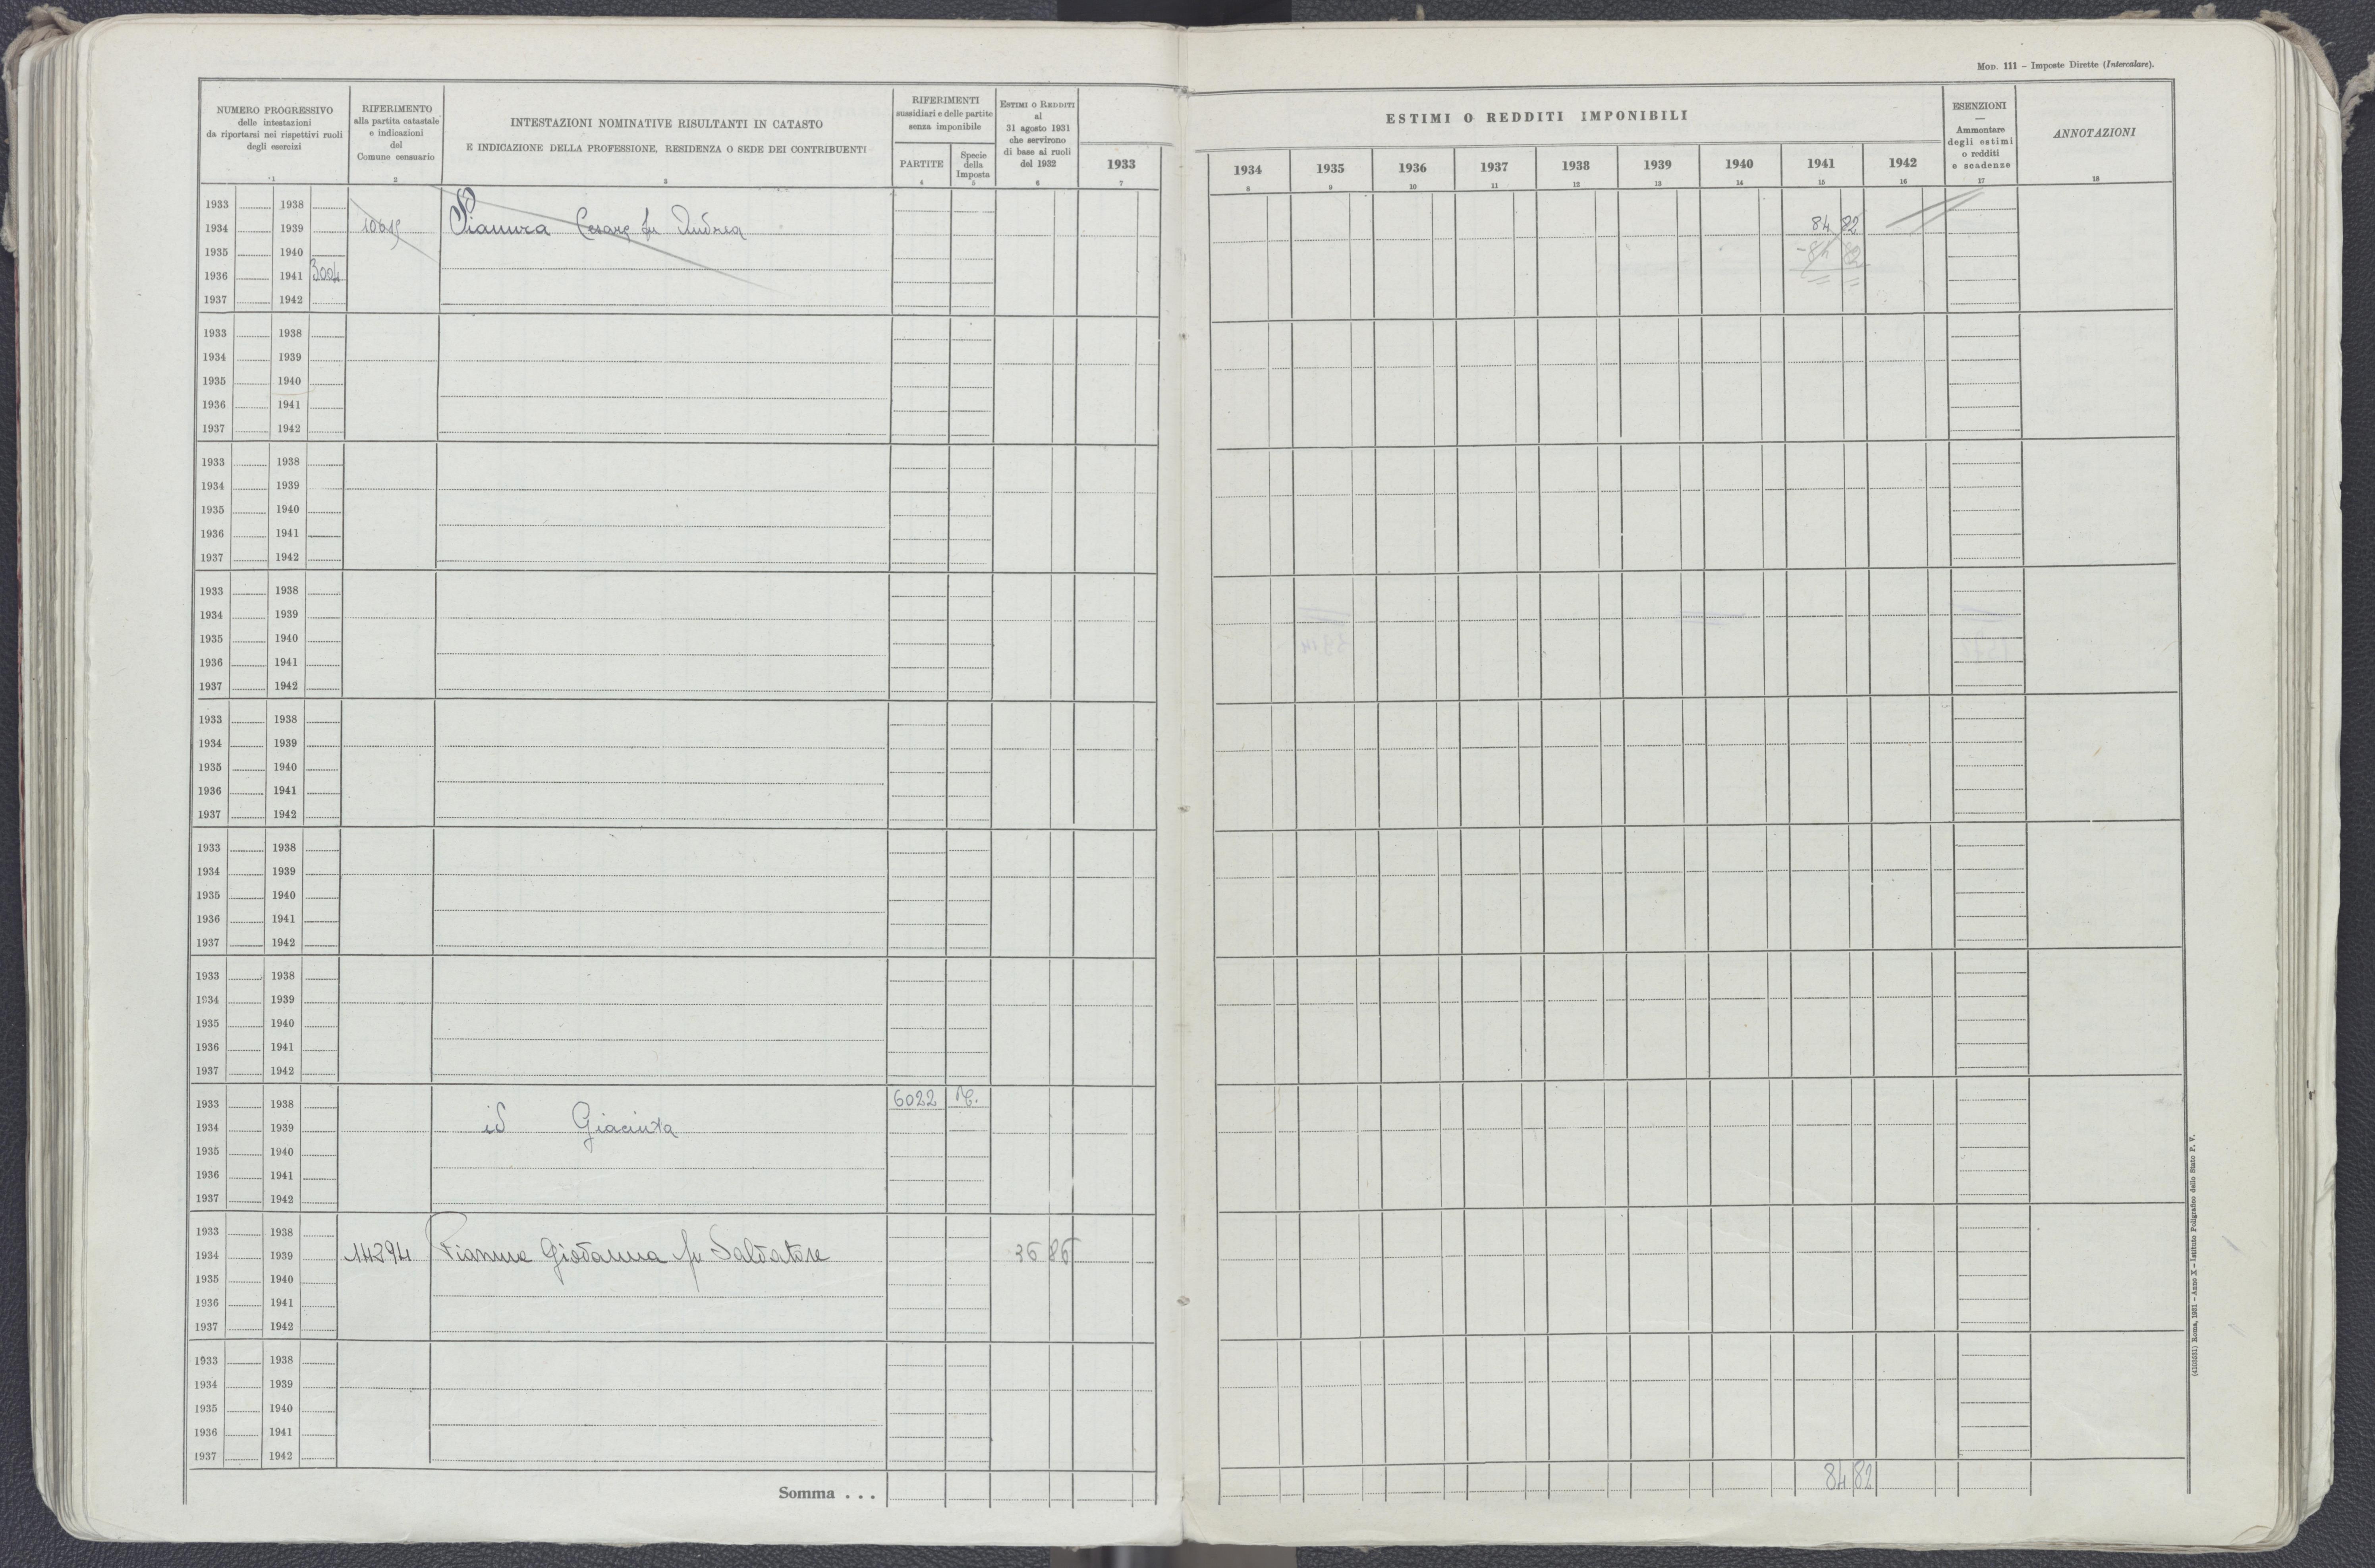 MOD. 111 – Imposte Dirette (Intercalare).
NUMERO PROGRESSIVO
delle intestazioni
da riportarsi nei rispettivi ruoli
degli esercizi
1
RIFERIMENTO
alla partita catastale
e indicazioni
del
Comune censuario
2
INTESTAZIONI NOMINATIVE RISULTANTI IN CATASTO
E INDICAZIONE DELLA PROFESSIONE, RESIDENZA O SEDE DEI CONTRIBUENTI
3
RIFERIMENTI
sussidiari e delle partite
senza imponibile
PARTITE
4
Specie
della
Imposta
5
ESTIMI O REDDITI
al
31 agosto 1931
che servirono
di base ai ruoli
del 1932
6
ESTIMI O REDDITI IMPONIBILI
1933 1934 1935 1936 1937 1938 1939 1940 1941 1942
7 8 9 10 11 12 13 14 15 16
ESENZIONI
—
Ammontare
degli estimi
o redditi
e scadenze
17
ANNOTAZIONI
18
1933 1938
1934 1939 Cesare fu Andrea 84 82
1935 1940 -84 82
1936 1941 3004
1937 1942
1933 1938
1934 1939
1935 1940
1936 1941
1937 1942
1933 1938
1934 1939
1935 1940
1936 1941
1937 1942
1933 1938
1934 1939
1935 1940
1936 1941
1937 1942
1933 1938
1934 1939
1935 1940
1936 1941
1937 1942
1933 1938
1934 1939
1935 1940
1936 1941
1937 1942
1933 1938
1934 1939
1935 1940
1936 1941
1937 1942
1933 1938 6022
1934 1939 id Giacinta
1935 1940
1936 1941
1937 1942
1933 1938
1934 1939 14394 Giovanna fu Salvatore 36 86
1935 1940
1936 1941
1937 1942
1933 1938
1934 1939
1935 1940
1936 1941
1937 1942
Somma . . . 84 82
(4103531) Roma, 1931 – Anno X – Istituto Poligrafico dello Stato P. V.